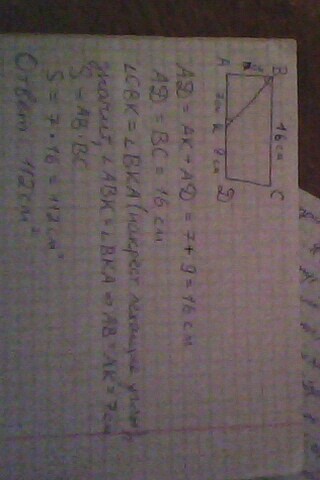 B
16 см
C
A
7см
K
9см
D
AD = AK + AD = 7 + 9 = 16 см
AD = BC = 16 см
∠CBK = ∠BKA (накрест лежащие углы)
значит, ∠ABK = ∠BKA ⇒ AB = AK = 7см
S = AB · BC
S = 7 · 16 = 112 см²
Ответ: 112 см²